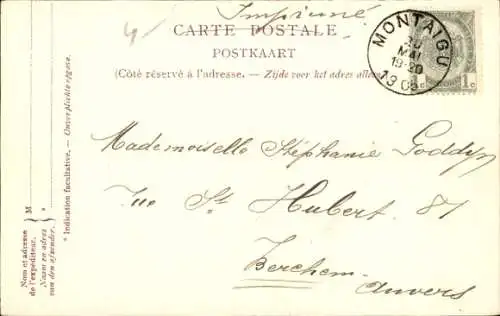 Imprimé
CARTE POSTALE
POSTKAART
(Côté réservé à l'adresse. — Zijde voor het adres
MONTAIGU
MAI
19-20
1c 1c
Mademoiselle Stéphanie Goddyn
Rue St Hubert 81
Berchem
Anvers
* Indication facultative. — Onverplichte opgave.
M
*
Nom et adresse
de l'expéditeur.
Naam en adres
van den afzender.